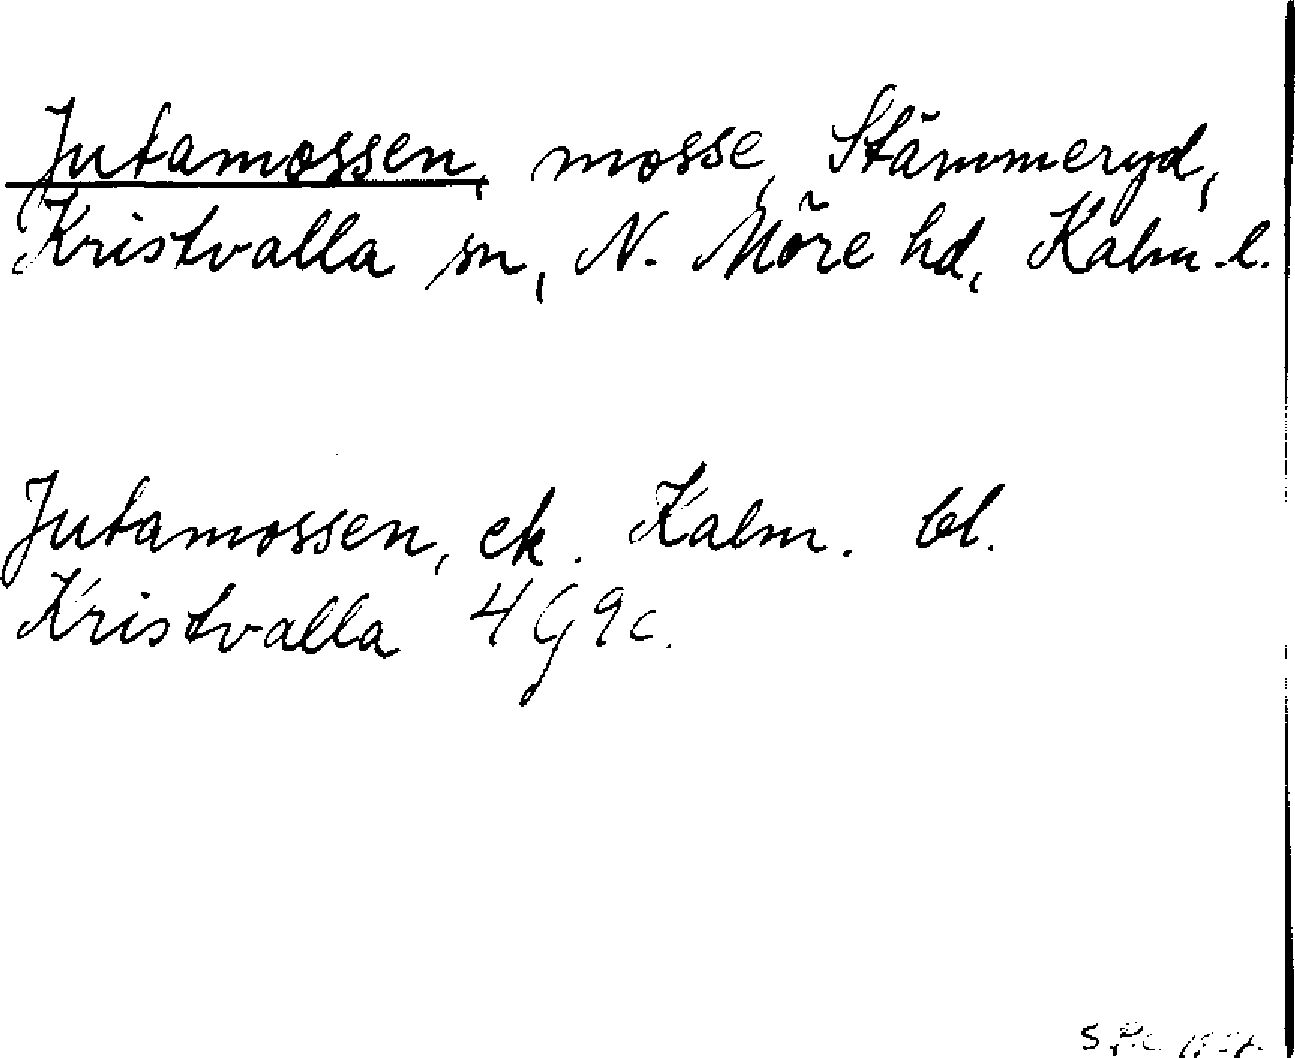 Jutamossen, mosse, Stämmeryd,
Kristvalla sn, N. Möre hd, Kalm. l.
Jutamossen, ek. Kalm. bl.
Kristvalla 4G9c.